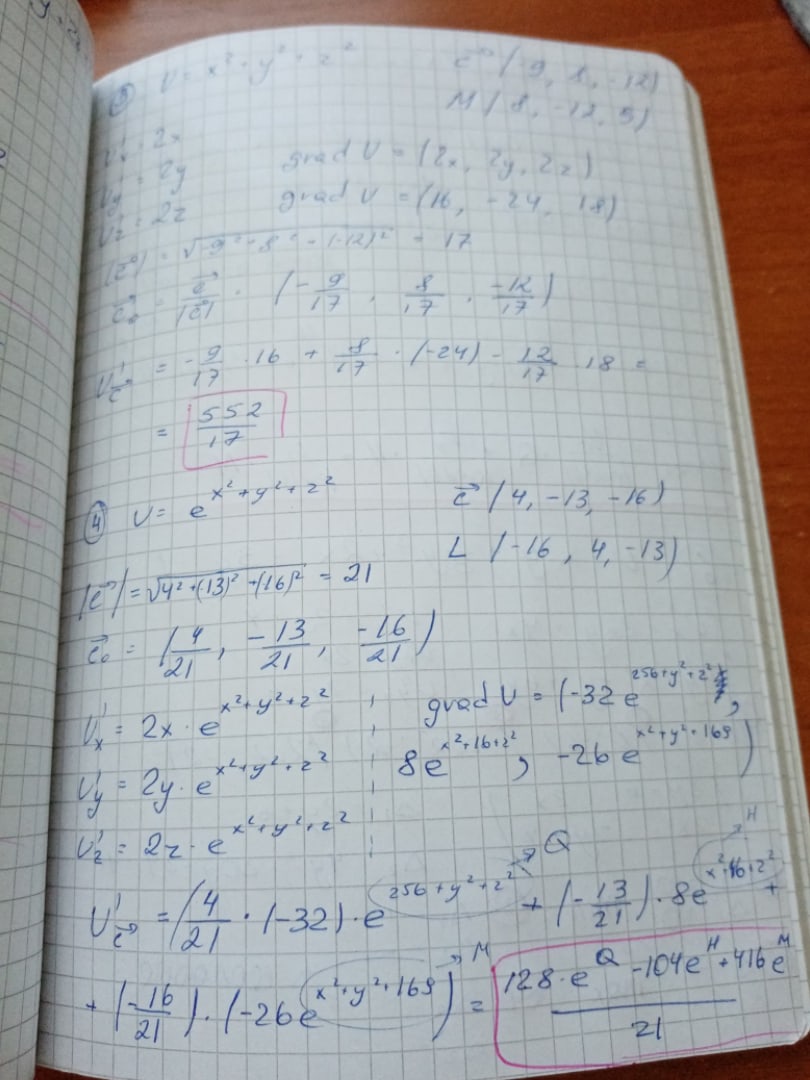 ③ U = x² + y² + z²   c⃗ (-9, 8, -12)
M (8, -12, 9)
U'x = 2x
U'y = 2y   grad U = (2x, 2y, 2z)
U'z = 2z   grad U = (16, -24, 18)
|c⃗| = √(-9² + 8² - (-12)²) = 17
c⃗₀ = c⃗/|c⃗| · (-9/17, 8/17, -12/17)
U'c⃗ = -9/17 · 16 + 8/17 · (-24) - 12/17 · 18 =
= 552/17
④ U = e^(x²+y²+z²)   c⃗ (4, -13, -16)
L (-16, 4, -13)
|c⃗| = √(4²+(13)²+(16)²) = 21
c⃗₀ = (4/21, -13/21, -16/21)
U'x = 2x · e^(x²+y²+z²)   grad U = (-32 e^(256+y²+z²),
U'y = 2y · e^(x²+y²+z²)   8e^(x²+16+z²), -26 e^(x²+y²+169))
U'z = 2z · e^(x²+y²+z²)
U'c⃗ = (4/21 · (-32) · e^(256+y²+z²) → Q + (-13/21) · 8e^(x²+16+z²) → H +
+ (-16/21) · (-26e^(x²+y²+169)) → M = (128 · e^Q - 104e^H + 416e^M)/21